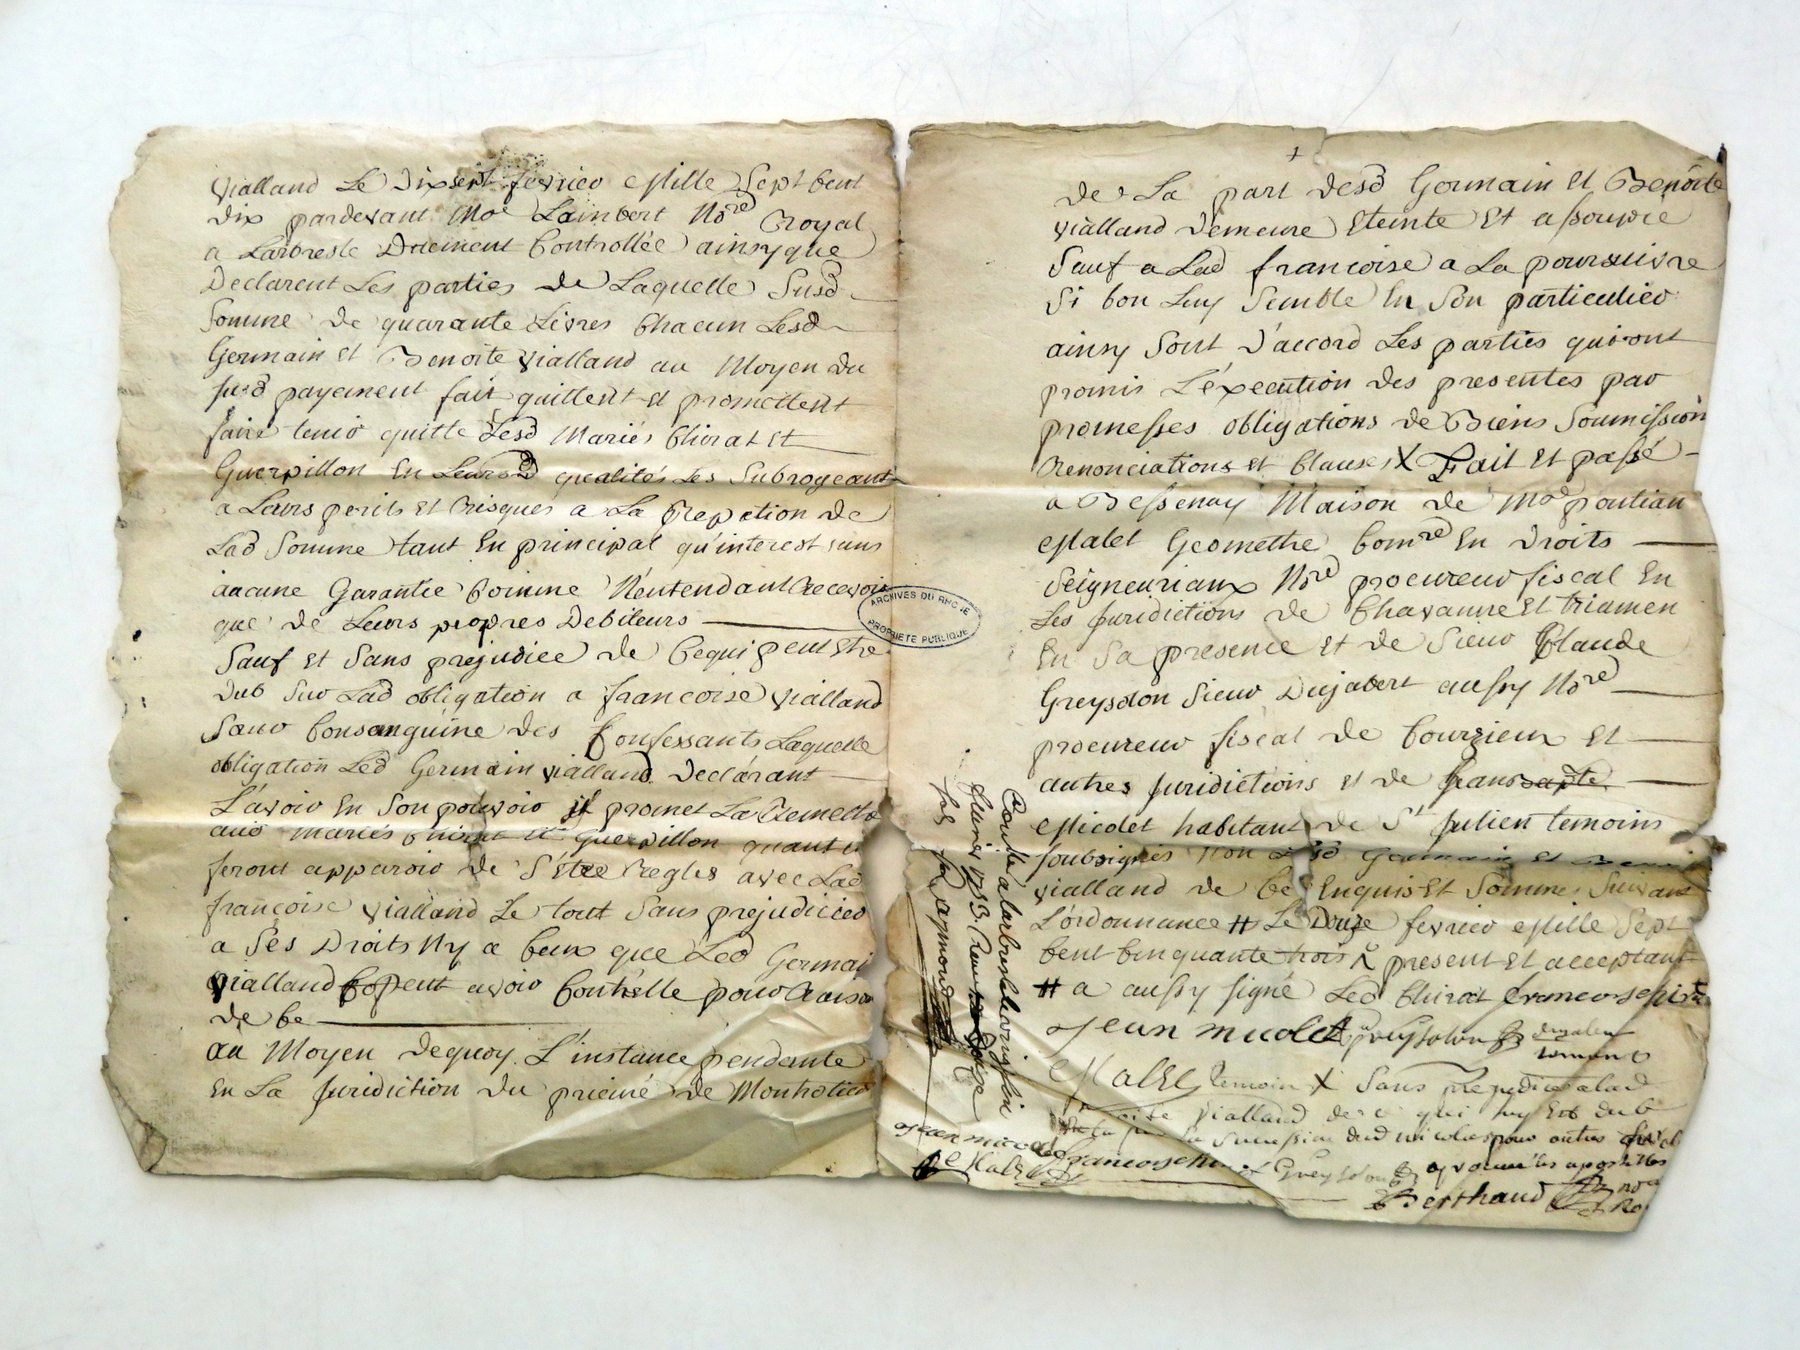 Vialland Le Dixsept fevrier Mille Sept Cent
Dix pardevant Me Lambert Nore Royal
a Larbresle Duement Controllée ainsy que
Declarent Les parties de Laquelle Susd
Somme de quarante Livres Chacun Lesd
Germain et Benoite Vialland au Moyen du
susd payement fait quittent et promettent
faire tenir quitte Lesd Mariés Chirat et
Guerpillon En Leursd qualités Les Subrogeant
a Leurs perils et Risques a La Repetion de
Lad Somme tant En principal qu'interest sans
aucune Garantie Comme N'entendant Recevoir
que de Leurs propres Debiteurs
Sauf et Sans prejudice de Cequi peut Etre
Dub Sur Lad obligation a françoise Vialland
Sœur Consanguine des Confessants Laquelle
obligation Led Germain Vialland Declarant
L'avoir En Son pouvoir il promet La Remettre
aux Mariés Chirat et Guerpillon quant ils
feront apparoir de S'étre Regles avec Lad
françoise Vialland Le tout Sans prejudicier
a Ses Droits Ny a Ceux que Led Germain
Vialland peut avoir Contrelle pour Raison
de Ce
au Moyen dequoy L'instance pendante
En La Juridiction du prieuré de Montrotier
de La part desd Germain et Benoite
Vialland demeure Eteinte Et assoupie
Sauf a Lad françoise a La poursuivre
Si bon Luy Semble En Son particulier
ainsy Sont d'accord Les parties qui ont
promis L'éxecution des presentes par
promesses obligations de Biens Soumissions
Renonciations et Clauses X Fait et passé
a Bessenay Maison de Me pontian
Malet Geomethre Comre En Droits
Seigneuriaux Nore procureur fiscal En
Les Juridictions de Chavanne Et triamen
En Sa presence Et de Sieur Claude
Greysolon Sieur Dujabert aussy Nore
procureur fiscal de Courzieux et
autres Juridictions et de Jean
Micolet habitant de St Julien temoins
soubsignés Non Lesd Germain et Benoite
Vialland de Ce Enquis Et Sommes Suivant
L'ordonnance # Le Douze fevrier Mille Sept
Cent Cinquante trois present et acceptant
# a aussy signé Led Chirat francois chirat
Jean micolet Greysolon
temoint
Malet temoin X Sans prejudice a lad
Vialland de ce qui luy Est dub
la Sucession dud nicolas pour autres
Jean micolet francois chirat Greysolon
Malet
Berthaud nore Ro
Controllé a larbresle
fevrier 1753. Reçu douze
sols
ARCHIVES DU RHONE
PROPRIETE PUBLIQUE